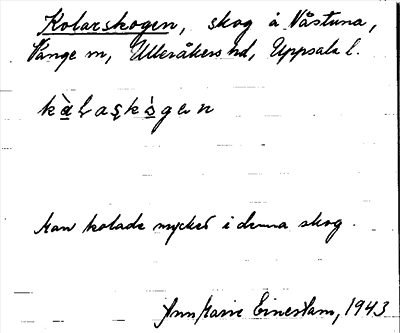 Kolarskogen, skog å Våstuna,
Vänge sn, Ulleråkers hd, Uppsala l.
man kolade mycket i denna skog.
Ann Marie Einerstam, 1943